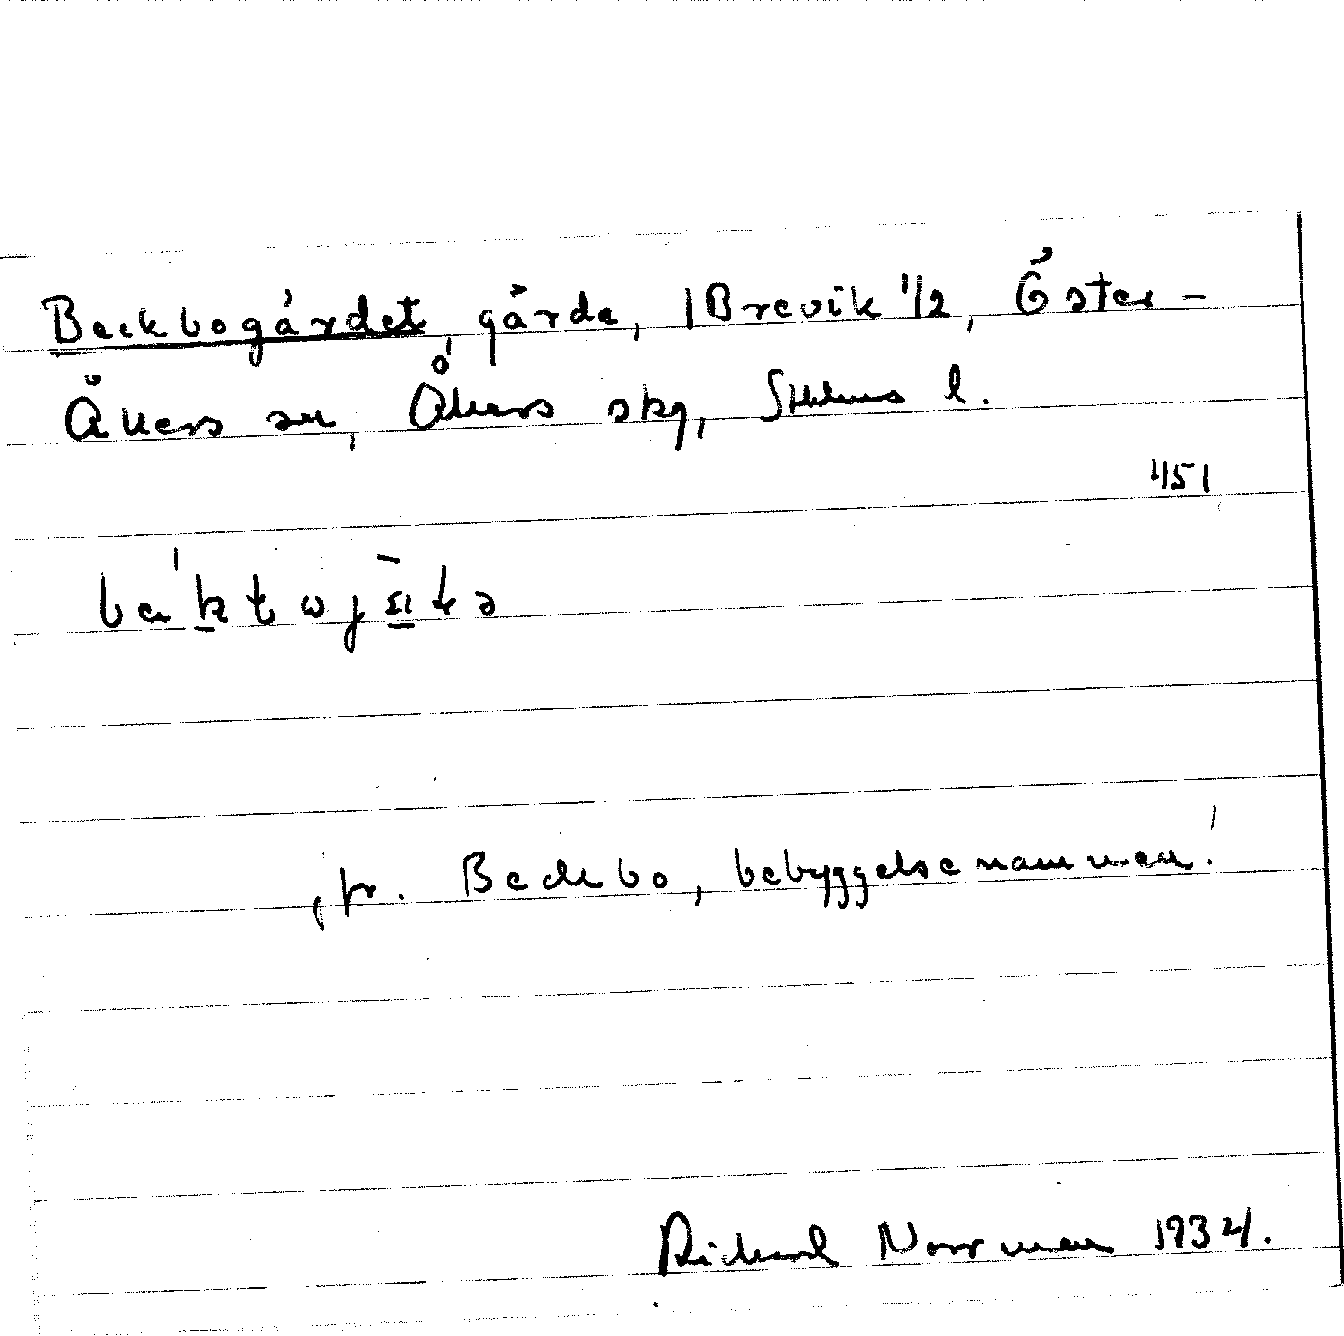 Beckbogärdet, gärde, 1 Brevik 1/2, Öster-
Åkers sn, Åkers skg, Sthlms l.
451
, fr. Beckbo, bebyggelsenamn
Richard Norrman 1934.